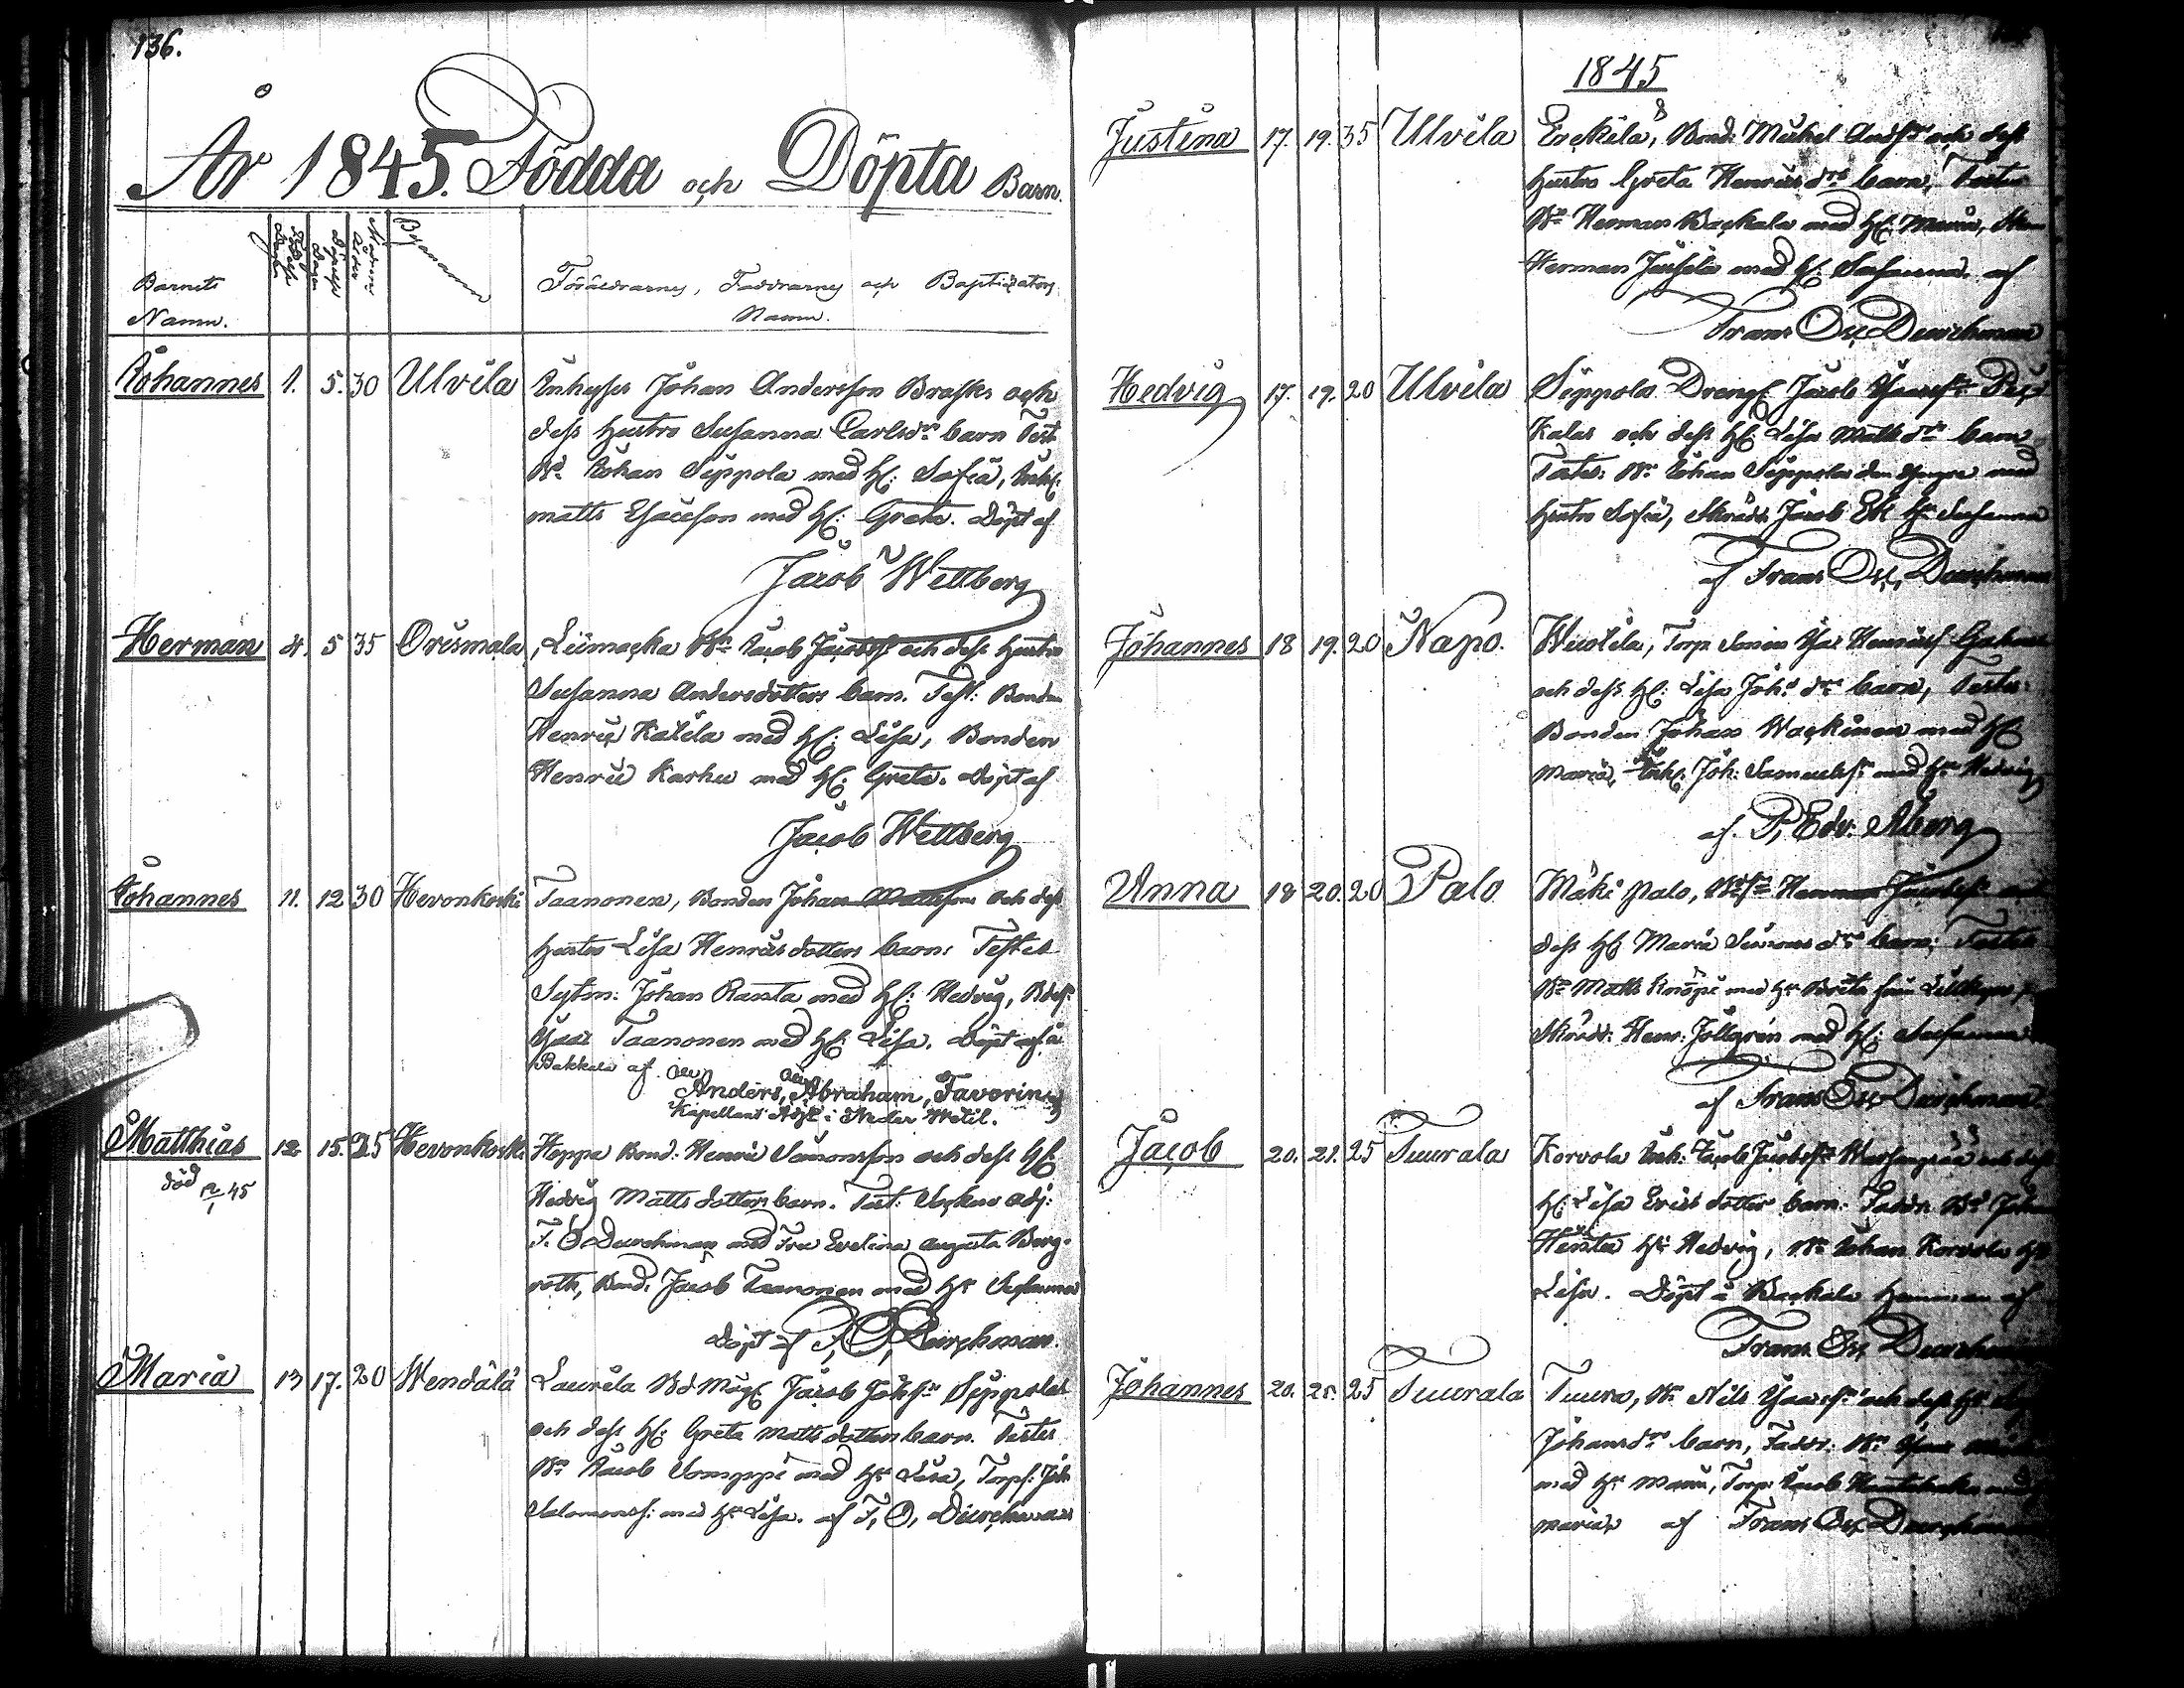 136.
År 1845. Födda och Döpta Barn.
Barnets
Namn.
Födelse
Dagen
Döpelse
Dagen
Modrens
ålder
Bynamn
Föräldrarnes, Faddrarnes och Baptizators
Namn.
Johannes 1. 5. 30 Ulvila Inhyses Johan Andersson Brask och
dess hustro Susanna Carlsdrs barn Test.
Bn Johan Seppola med H: Sofia, Inh:
Matts Esaicson med H: Greta. Döpt af
Jacob Wettberg
Herman 4. 5 35 Orismala, Liimacka Bn Jacob Jacobss och dess hustro
Susanna Andersdotters barn. Test: Bonden
Henric Katila med H: Lisa, Bonden
Henric Karhu med H: Greta. Döpt af
Jacob Wettberg
Johannes 11. 12 30 Hevonkoski Taanonen, Bonden Johan Mattsson och dess
hustro Lisa Henricsdotters barn: Testes
Sytm: Johan Ranta med H: Hedvig, Bdes:
Isac Taanonen med H: Lisa. Döpt af å
Backala af
Anders, Abraham, Favorin,
Kapellans Adjt i Neder Wetil.
Matthias 12. 15. 25 Hevonkoski Hoppa Bond: Henric Simonsson och dess H:
död 12/1 45
Hedvig Mattsdotters barn. Test: Sockne Adj:
F. O Durchman med Fru Evelina Augusta Berg-
roth, Bond: Jacob Taanonen med Hu Susanna
Döpt af F, O, Durchman.
Maria 13 17. 20 Wendälä Laurila Bd Mågh Jacob Johss Seppola
och dess H: Greta Mattsdotters barn. Testes
Bn Jacob Somppi med Hu Lisa, Torp: Joh
Salomonss: med Hu Lisa. af F, O, Durchman
1845
Justina 17. 19. 35 Ulvila Erckila, Bond: Michel Andss och dess
hustro Greta Henricsdrs barn, Testes
Bn Herman Backala med H: Maria,
Herman Jussila med H: Susanna. af
Frans Osc Durchman
Hedvig 17. 19. 20 Ulvila Seppola Dreng Jacob Isacss
Kalas och dess H: Lisa Mattsdrs barn
Testes: Bn Johan Seppola den yngre med
hustro Sofia, Skrädd: Jacob Ek Hu Susanna
af Frans Osc, Durchman
Johannes 18 19. 20 Napo. Wuolila, Torp. Sonen Isac Henricss
och dess H: Lisa Johs drs barn, Testes:
Bonden Johan Wackinen med H:
Maria, Inh: Joh: Samuelss: med Hu Hedvig
af. P, Edv: Åberg
Anna 18 20. 20 Palo Mäki Palo, Herman Jacobss och
dess H: Maria Simonsdrs barn; Testes
Bn Matts Knopi med Hu Brita från
Skrädd: Henr: Jöllgren med H: Susanna
af Frans Osc Durchman
Jacob 20. 21. 25 Tuurala Korvola Inh: Jacob Jacobss och dess
H: Lisa Ericsdotter barn. Faddr. Bn Johan
Hu Hedvig, Bn Johan Korvola Hu
Lisa. Döpt å Backala Hemman af
Frans Osc Durchman
Johannes 20. 25. 25 Tuurala Tuura, Bn Nils Isacss och dess Hu
Johansdrs barn, Faddr: Bn Isac
med Hu Maria, Torp: Jacob
Maria af Frans Osc Durchman